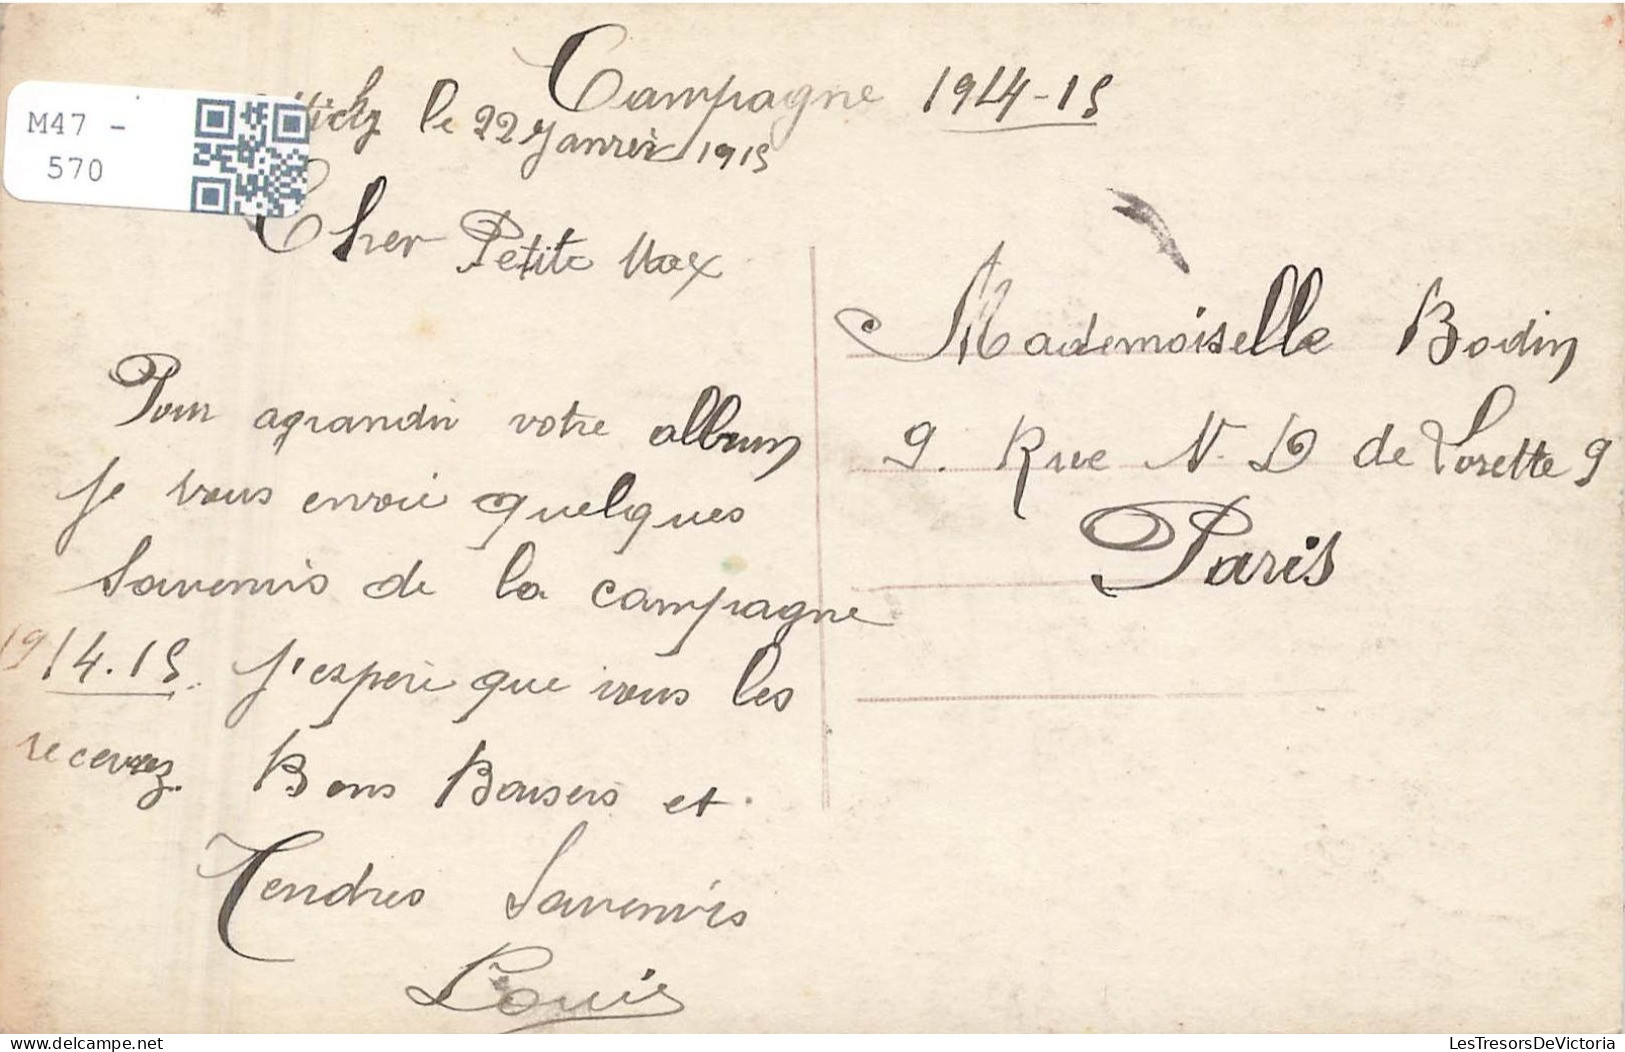 Campagne 1914-15
le 22 Janvier 1915
M47 -
570
Cher Petite Max
Pour agrandir votre album
je vous envoie quelques
souvenirs de la campagne
1914.15. J'espère que vous les
recevrez. Bons Baisers et
Tendres Souvenirs
Louis
Mademoiselle Bodin
9. Rue N. D de Lorette 9
Paris
delcampe.net
LesTresorsDeVictoria